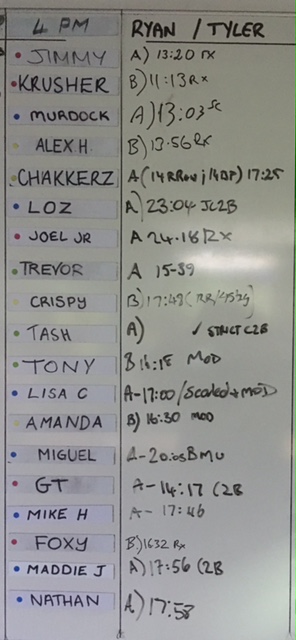 4 PM RYAN / TYLER
JIMMY A) 13:20 rx
KRUSHER B) 11:13 Rx
MURDOCK A) 13:03 sc
ALEX H B) 13.56 Rx
CHAKKERZ A (14 RRow / 14BP) 17:25
LOZ A) 23:04 JC2B
JOEL JR A 24.18 RX
TREVOR A 15-39
CRISPY B) 17:49 (RR/45kg)
TASH A) ✓ STRICT C2B
TONY B 16:18 MOD
LISA C A-17:00/Scaled + MOD
AMANDA B) 16:30 MOD
MIGUEL A-20:05 BMU
GT A-14:17 C2B
MIKE H A- 17:46
FOXY B) 1632 Rx
MADDIE J A) 17:56 C2B
NATHAN A) 17:58